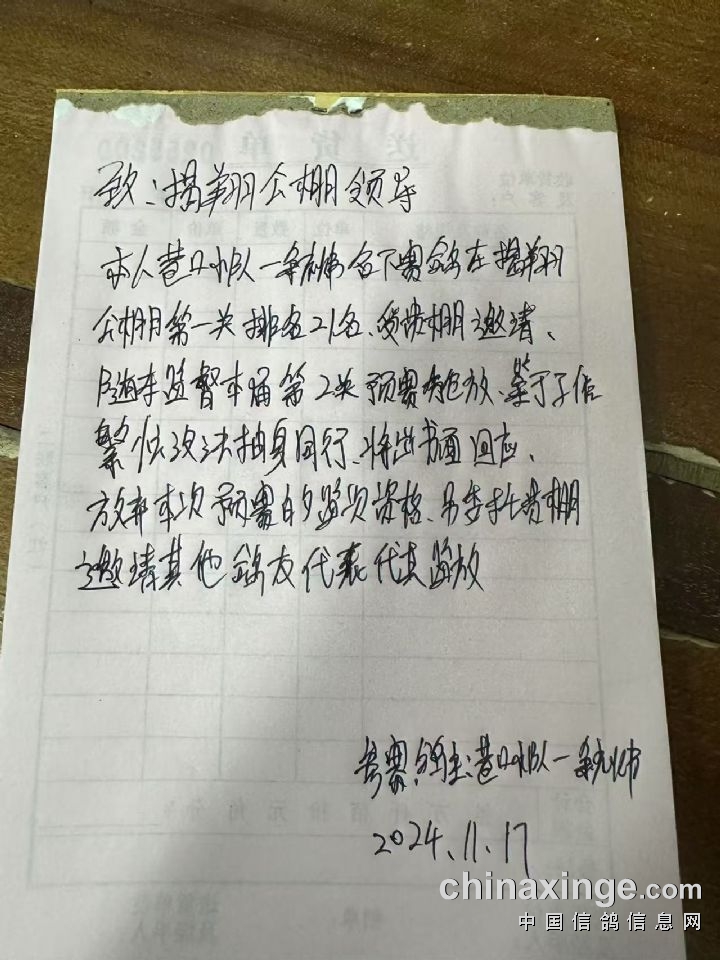 送货单
致：揭翔公棚领导
本人巷口小队一 名下赛鸽在揭翔
公棚第一关排名21名、受贵棚邀请、
随车监督本届第2关预赛 放、鉴于工作
繁忙没法抽身同行、将此书面回应、
放弃本次预赛的监放资格、另委托贵棚
邀请其他鸽友代表代其监放
参赛鸽主：巷口小队一
2024.11.17
chinaxinge.com
中国信鸽信息网